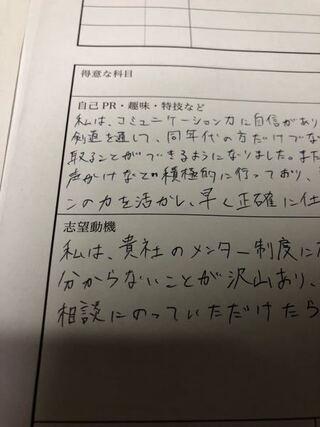 得意な科目
自己PR・趣味・特技など
私は、コミュニケーション力に自信があり
剣道を通して、同年代の方だけでな
取ることができるようになりました。また
声がけなどの積極的に行っており、
この力を活かし、早く正確に仕
志望動機
私は、貴社のメンター制度に
分からないことが沢山あり、
相談にのっていただけたら